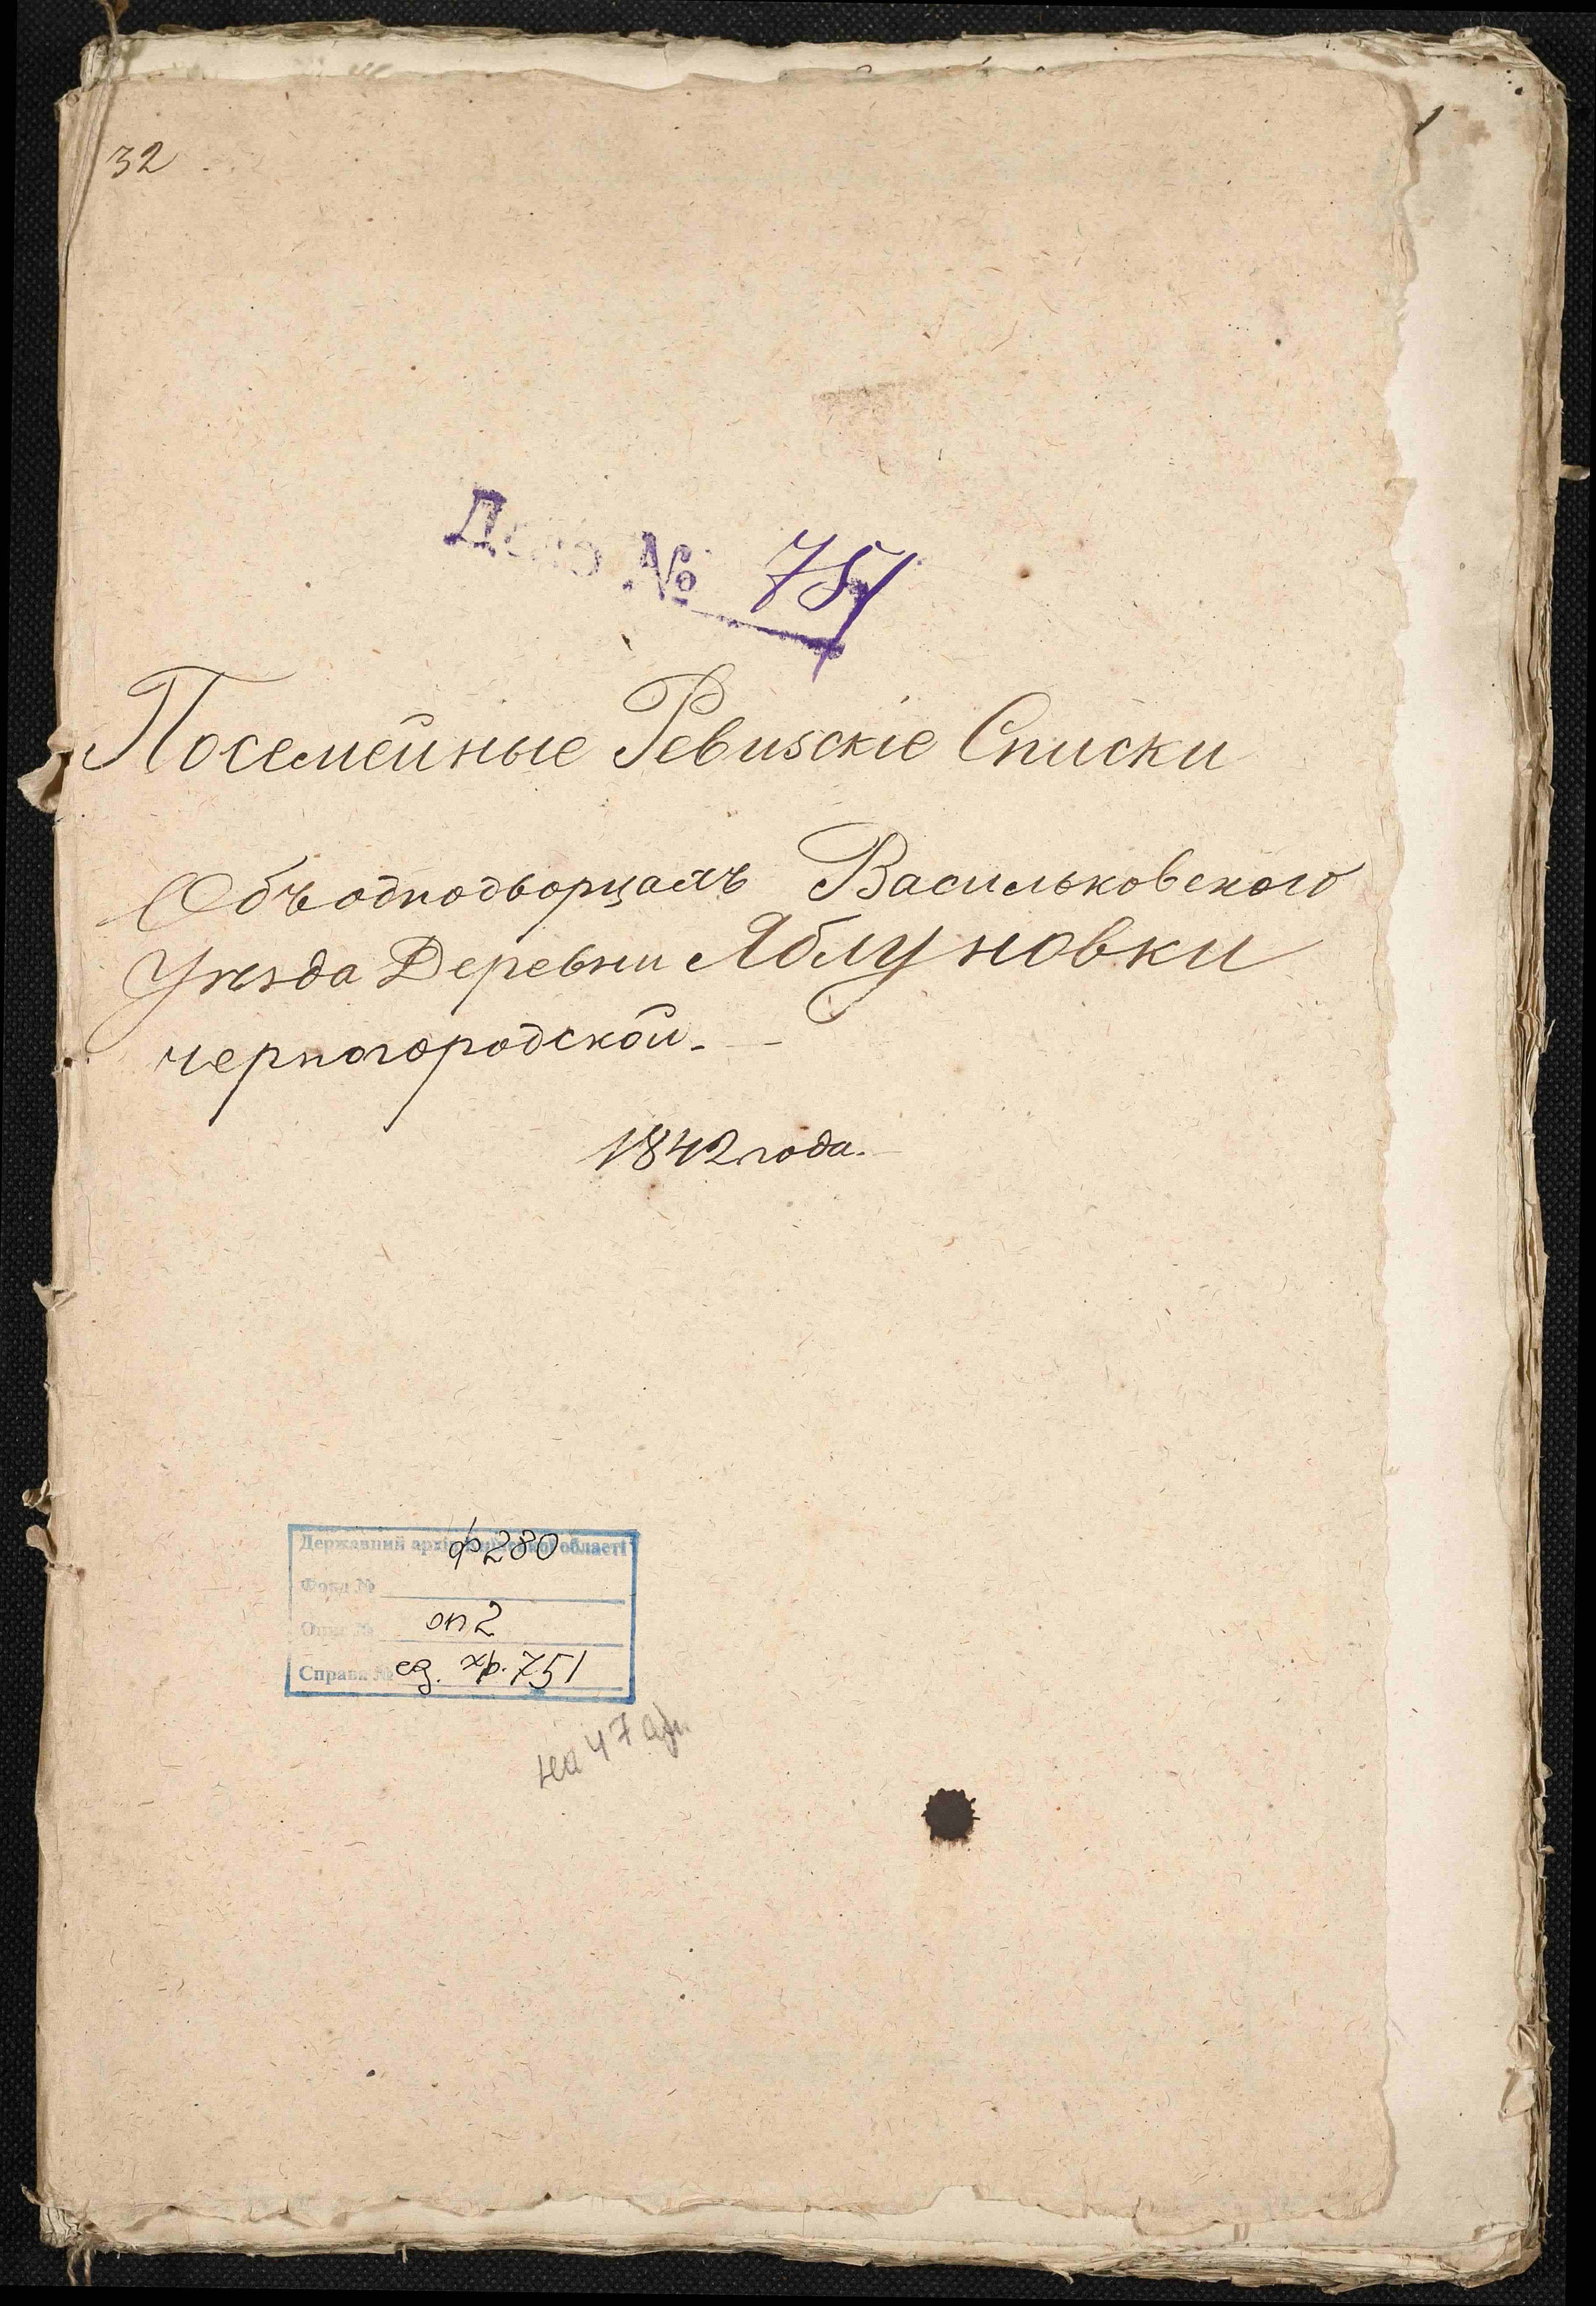 32
Дело № 751
Посемейные Ревизскіе Списки
Объ однодворцахъ Васильковского
Уѣзда Деревни Яблуновки
черногородской.
1842 года.
Державний архів Київської області
ф 280
Фонд №
Опис № оп 2
Справа № ед. хр. 751
на 47 арк.